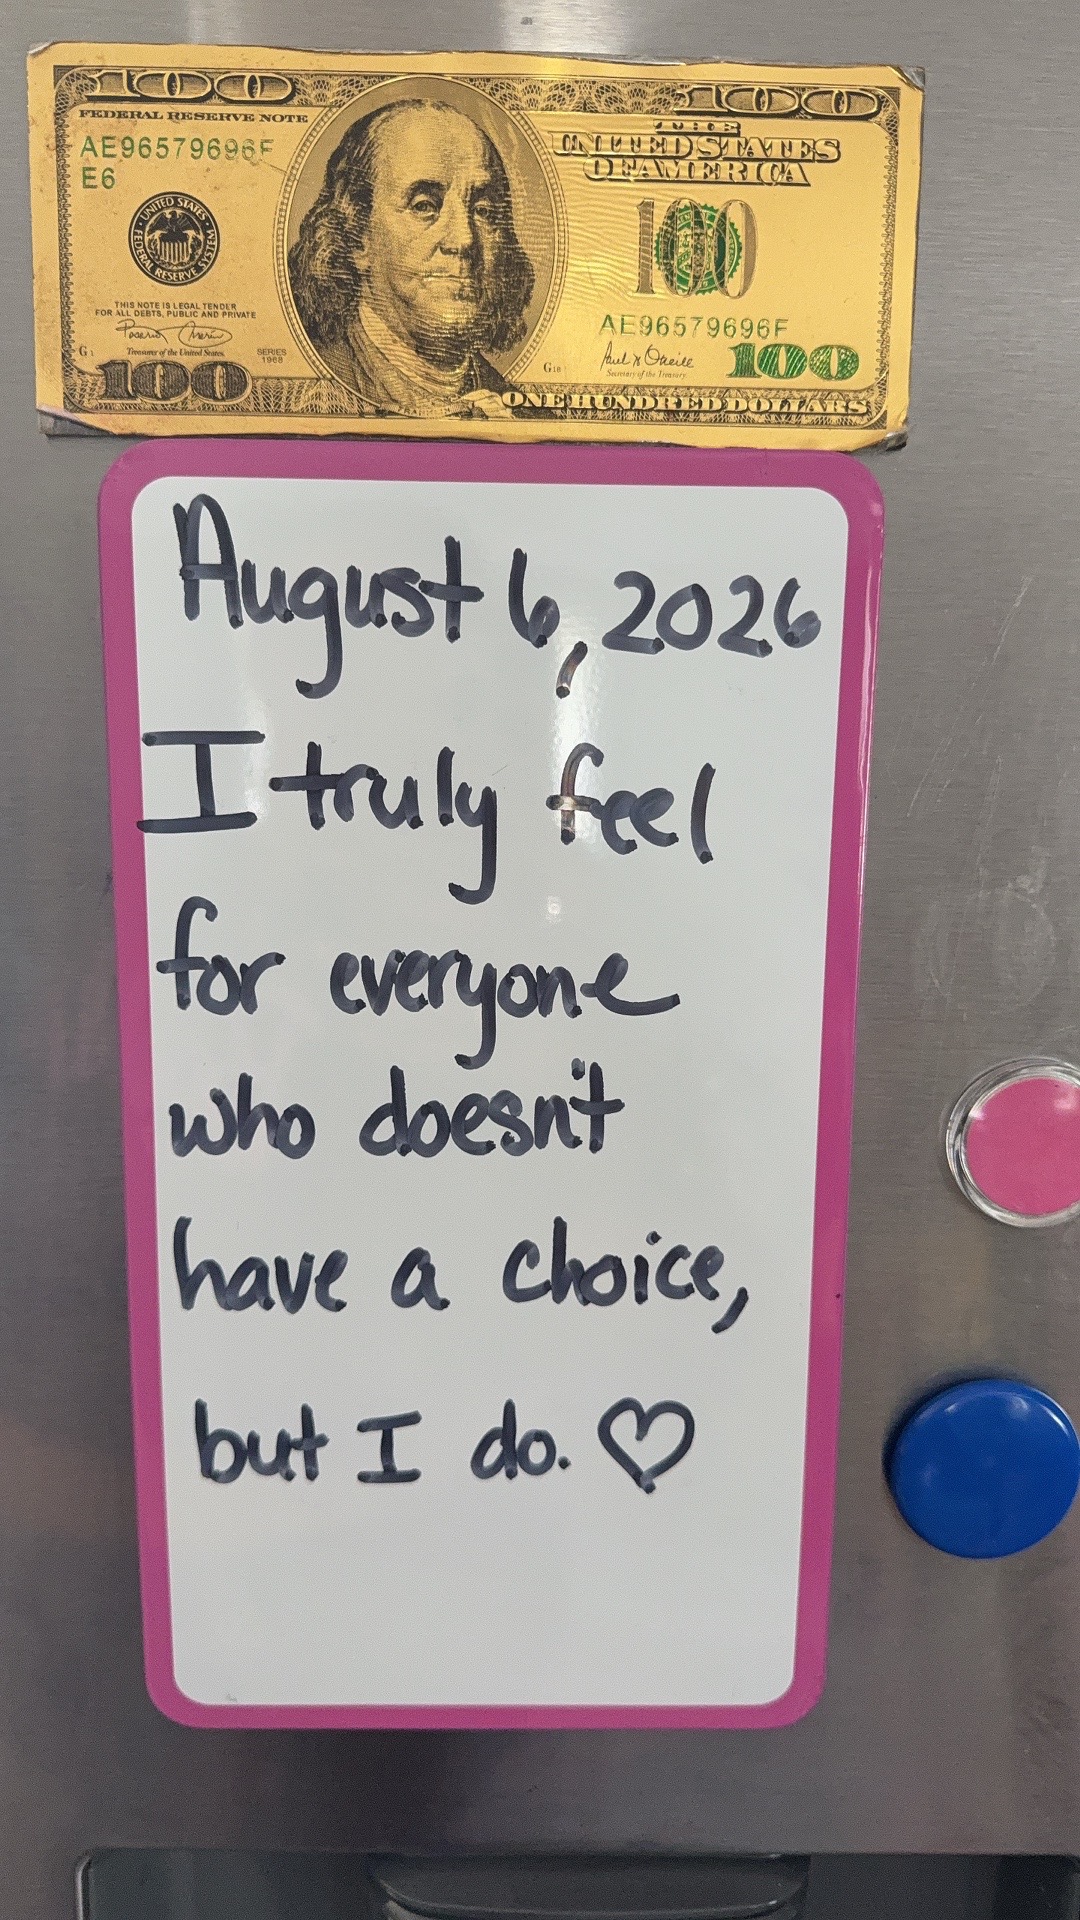 100 100
FEDERAL RESERVE NOTE
THE
UNITED STATES
OF AMERICA
AE96579696F
E6
UNITED STATES
FEDERAL RESERVE SYSTEM
100
THIS NOTE IS LEGAL TENDER
FOR ALL DEBTS, PUBLIC AND PRIVATE
AE96579696F
Treasurer of the United States.
SERIES
1968
Secretary of the Treasury
100
100
ONE HUNDRED DOLLARS
August 6, 2026
I truly feel
for everyone
who doesn't
have a choice,
but I do. ♡